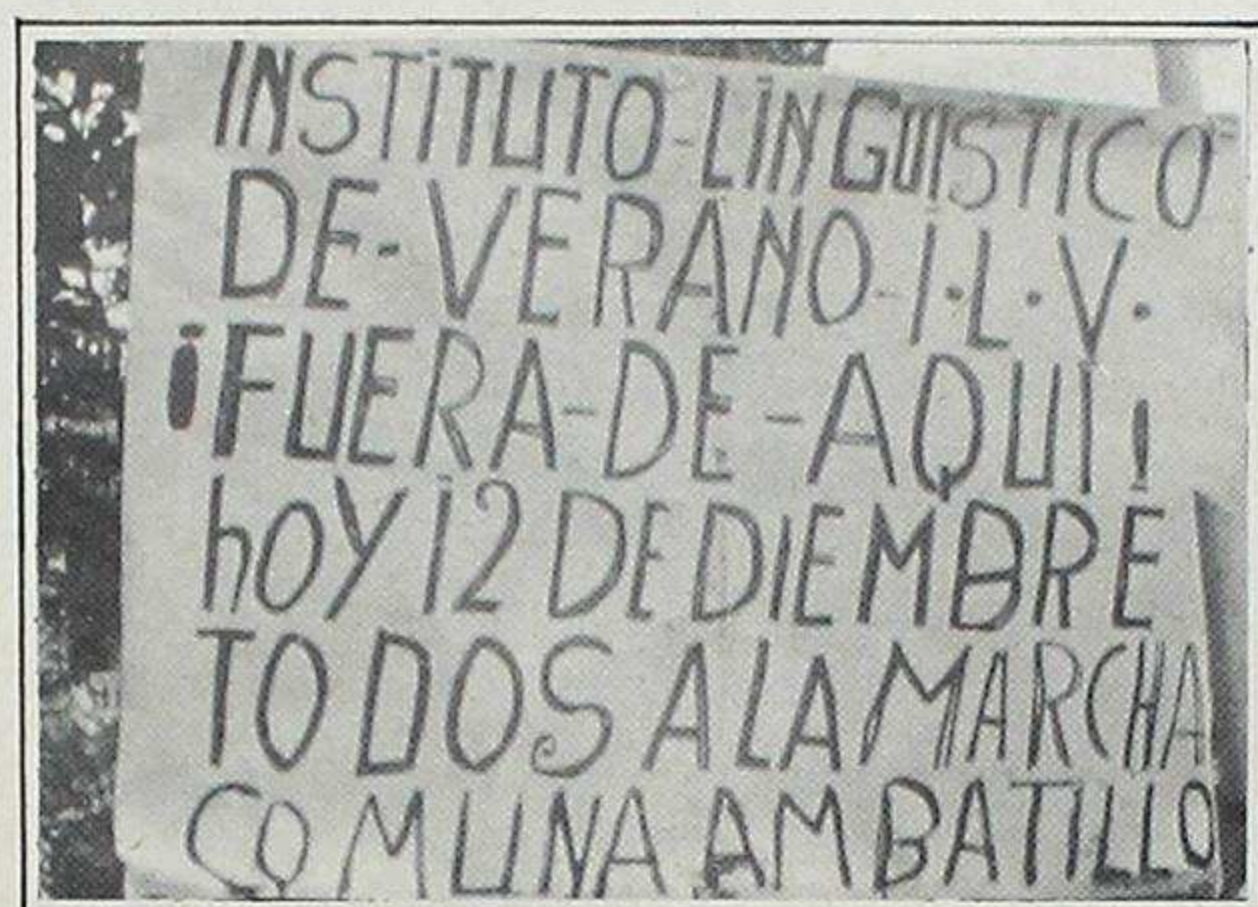 INSTITUTO-LINGUISTICO
DE-VERANO-I.L.V.
¡FUERA-DE-AQUI!
hOY 12 DE DIEMBRE
TODOS A LA MARCHA
COMUNA AMBATILLO